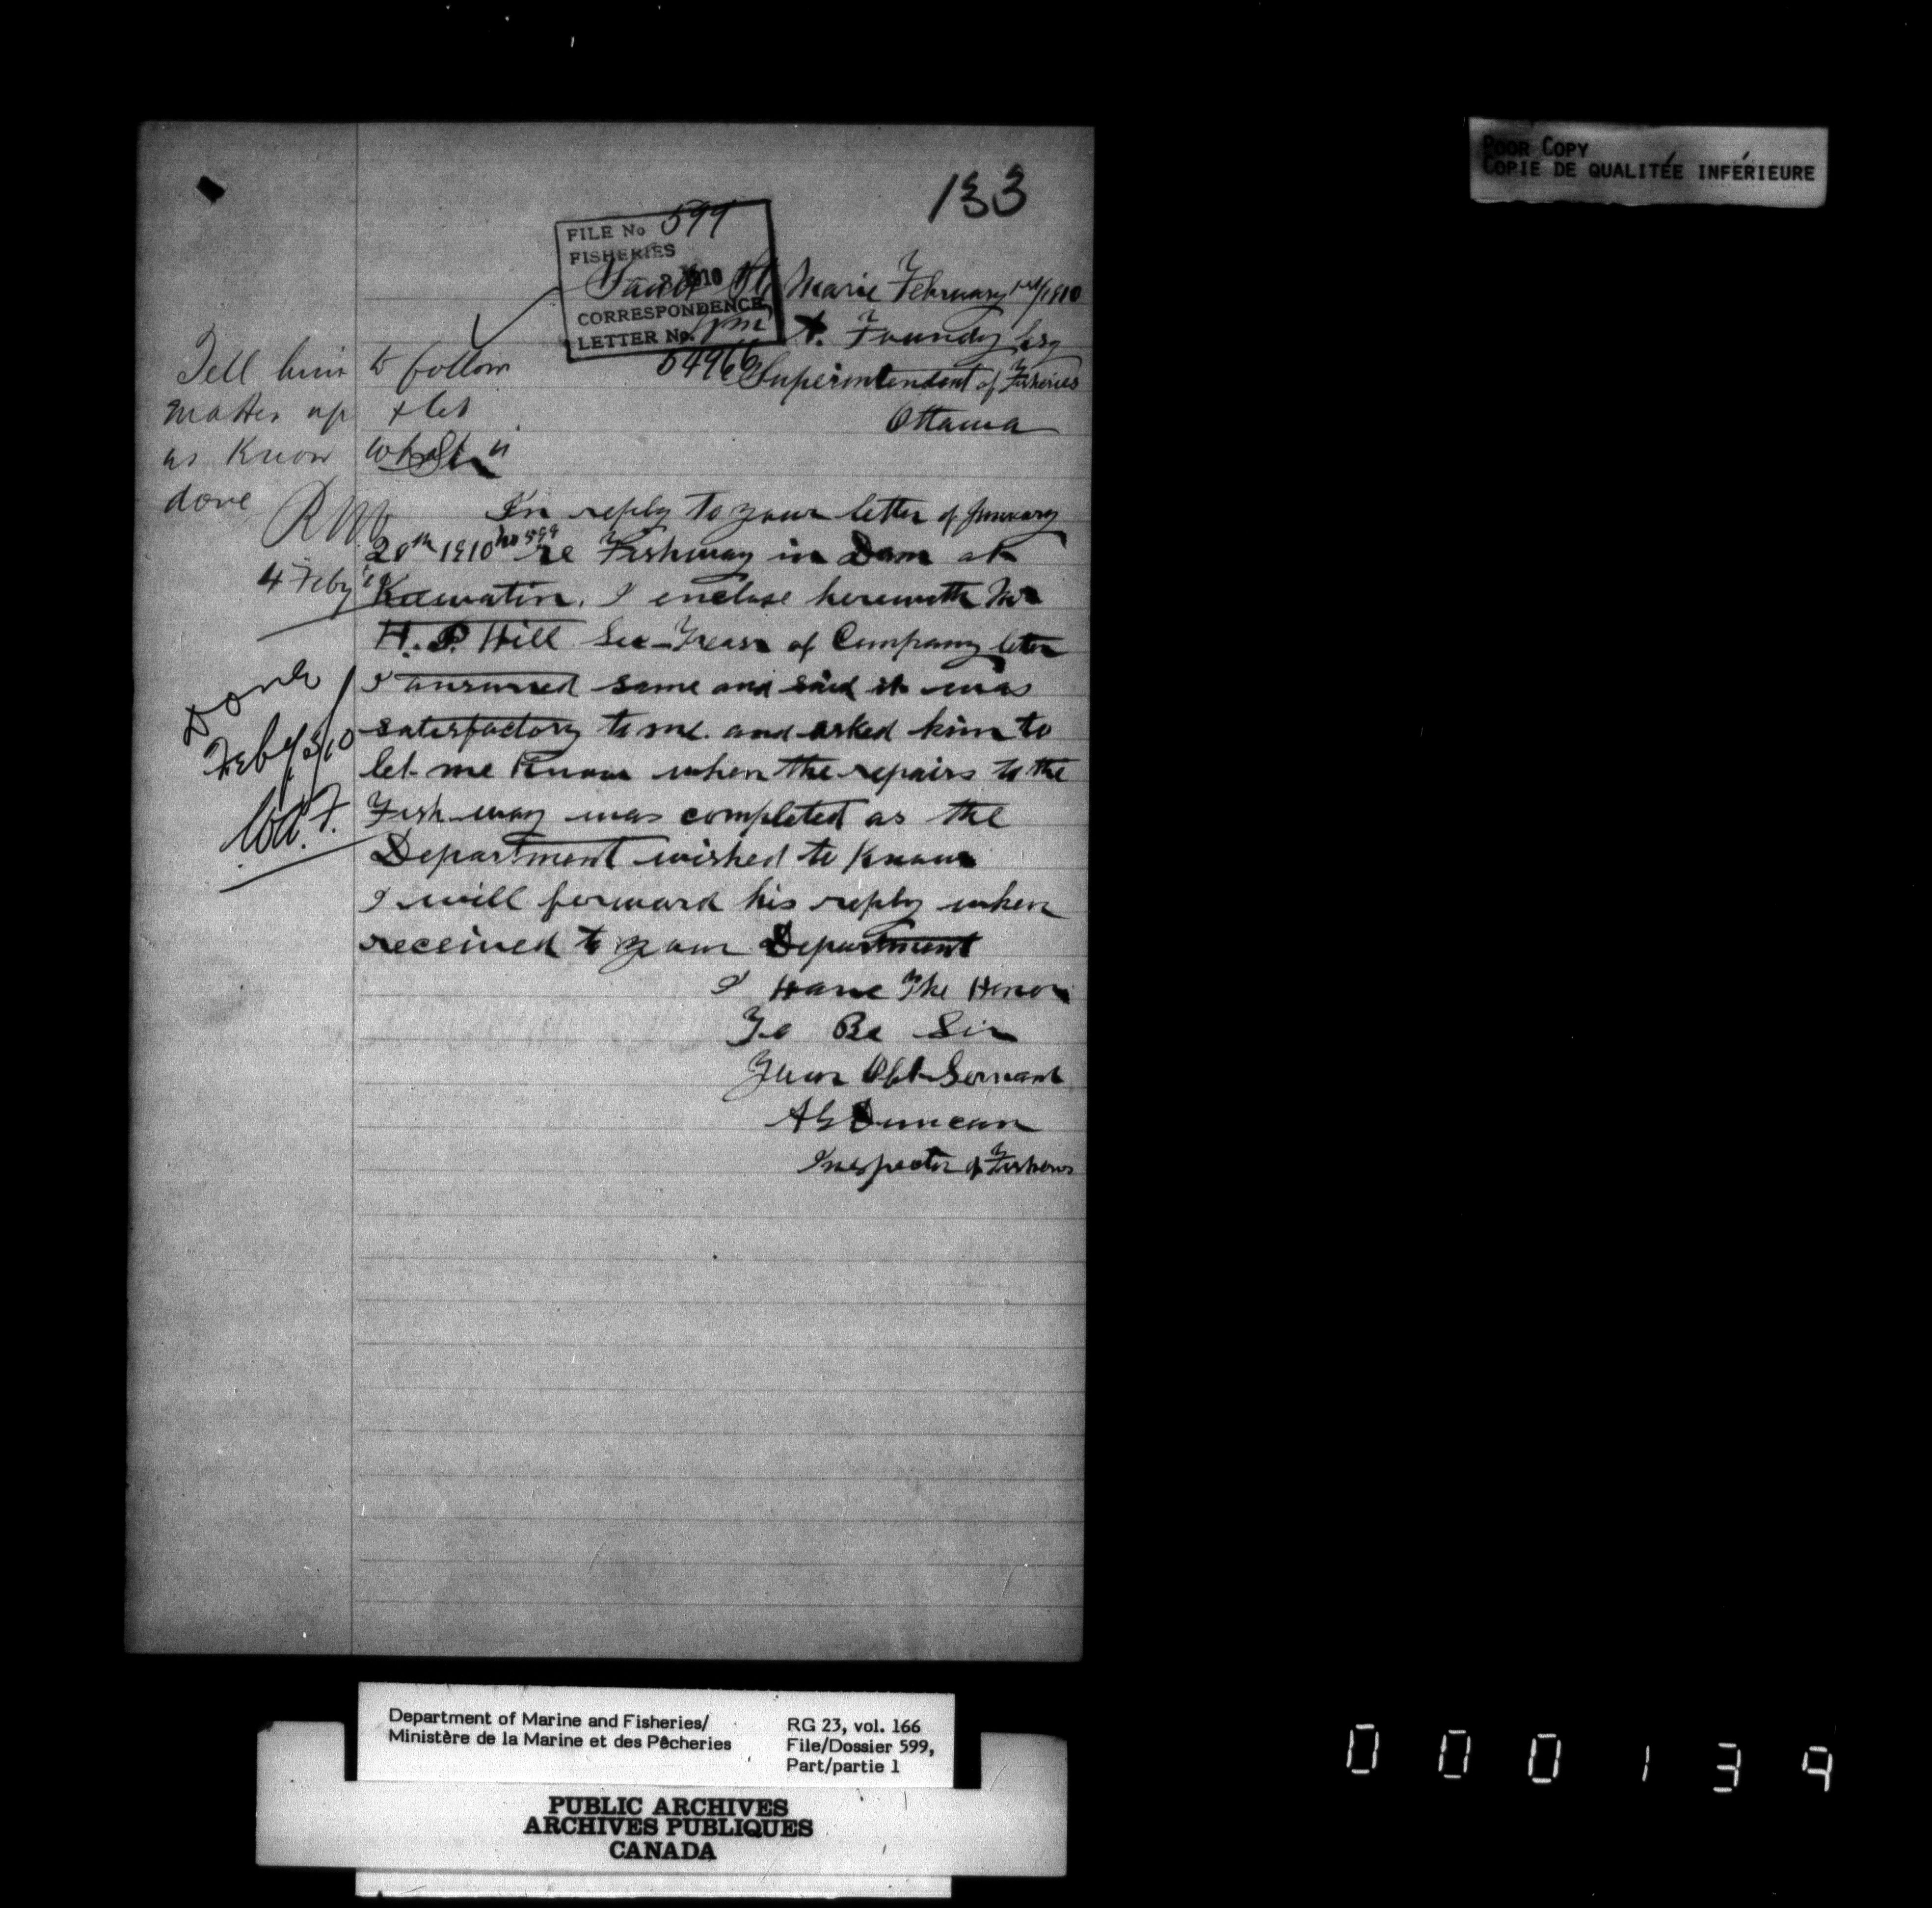 POOR COPY
COPIE DE QUALITÉE INFÉRIEURE
133
FILE No 599
FISHERIES
1910
CORRESPONDENCE
LETTER No.
54966
Sault St Marie February 1st/1910
Foundy Esq
Superintendent of Fisheries
Ottawa
Tell him to follow
matter up & let
us know what is
done
4 Feby '10
Done
Feby 5/10
In reply to your letter of January
20th 1910 no 599 re Fishway in Dam at
Keewatin. I enclose herewith Mr
H. P. Hill Sec-Treas of Company letter
I answered same and said it was
satisfactory to me. and asked him to
let me Know when the repairs to the
Fish-way was completed as the
Department wished to Know
I will forward his reply when
received to your Department
I Have The Honor
To Be Sir
Your Obt Servant
AG Duncan
Inspector of Fisheries
Department of Marine and Fisheries/
Ministère de la Marine et des Pêcheries
RG 23, vol. 166
File/Dossier 599,
Part/partie 1
PUBLIC ARCHIVES
ARCHIVES PUBLIQUES
CANADA
000139